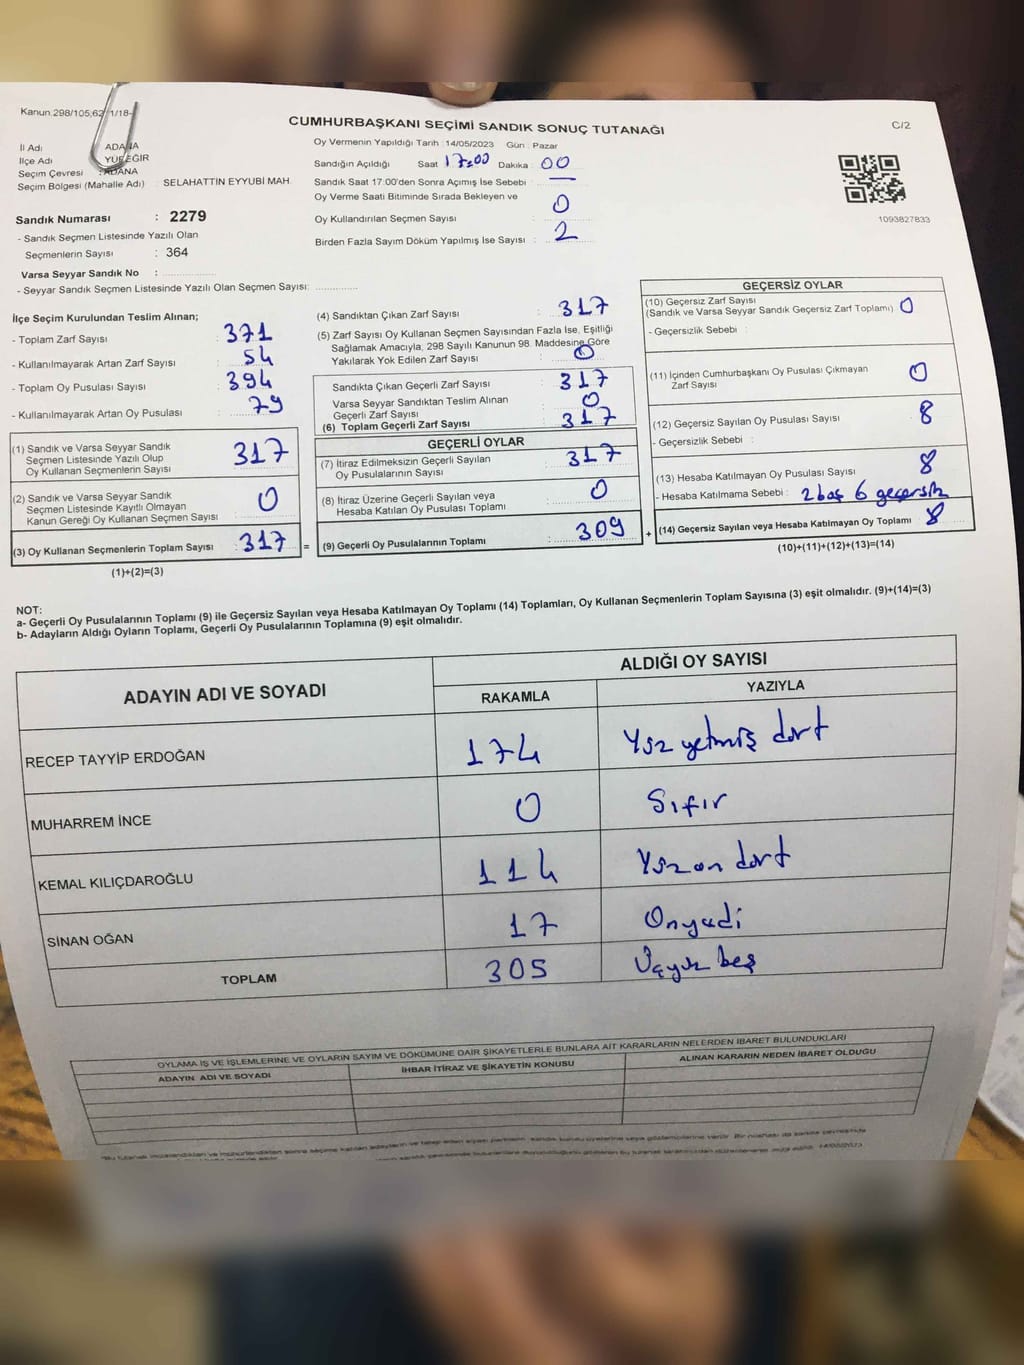 Kanun.298/105;62 1/18-
CUMHURBAŞKANI SEÇİMİ SANDIK SONUÇ TUTANAĞI
C/2
İl Adı ADANA
İlçe Adı YÜREĞİR
Seçim Çevresi : ADANA
Seçim Bölgesi (Mahalle Adı) : SELAHATTİN EYYUBİ MAH.
Sandık Numarası : 2279
- Sandık Seçmen Listesinde Yazılı Olan
Seçmenlerin Sayısı : 364
Varsa Seyyar Sandık No : ...............
- Seyyar Sandık Seçmen Listesinde Yazılı Olan Seçmen Sayısı: ...............
Oy Vermenin Yapıldığı Tarih : 14/05/2023 Gün : Pazar
Sandığın Açıldığı Saat 17:00 Dakika : 00
Sandık Saat 17:00'den Sonra Açımış İse Sebebi : —
Oy Verme Saati Bitiminde Sırada Bekleyen ve
Oy Kullandırılan Seçmen Sayısı : 0
Birden Fazla Sayım Döküm Yapılmış İse Sayısı : 2
1093827833
İlçe Seçim Kurulundan Teslim Alınan;
- Toplam Zarf Sayısı : 371
- Kullanılmayarak Artan Zarf Sayısı : 54
- Toplam Oy Pusulası Sayısı : 394
- Kullanılmayarak Artan Oy Pusulası : 79
(1) Sandık ve Varsa Seyyar Sandık
Seçmen Listesinde Yazılı Olup
Oy Kullanan Seçmenlerin Sayısı : 317
(2) Sandık ve Varsa Seyyar Sandık
Seçmen Listesinde Kayıtlı Olmayan
Kanun Gereği Oy Kullanan Seçmen Sayısı : 0
(3) Oy Kullanan Seçmenlerin Toplam Sayısı : 317 =
(1)+(2)=(3)
(4) Sandıktan Çıkan Zarf Sayısı : 317
(5) Zarf Sayısı Oy Kullanan Seçmen Sayısından Fazla İse, Eşitliği
Sağlamak Amacıyla, 298 Sayılı Kanunun 98. Maddesine Göre
Yakılarak Yok Edilen Zarf Sayısı : 0
Sandıkta Çıkan Geçerli Zarf Sayısı : 317
Varsa Seyyar Sandıktan Teslim Alınan
Geçerli Zarf Sayısı : 0
(6) Toplam Geçerli Zarf Sayısı : 317
GEÇERLİ OYLAR
(7) İtiraz Edilmeksizin Geçerli Sayılan
Oy Pusulalarının Sayısı : 317
(8) İtiraz Üzerine Geçerli Sayılan veya
Hesaba Katılan Oy Pusulası Toplamı : 0
(9) Geçerli Oy Pusulalarının Toplamı : 309 +
GEÇERSİZ OYLAR
(10) Geçersiz Zarf Sayısı
(Sandık ve Varsa Seyyar Sandık Geçersiz Zarf Toplamı) : 0
- Geçersizlik Sebebi :
(11) İçinden Cumhurbaşkanı Oy Pusulası Çıkmayan
Zarf Sayısı : 0
(12) Geçersiz Sayılan Oy Pusulası Sayısı : 8
- Geçersizlik Sebebi :
(13) Hesaba Katılmayan Oy Pusulası Sayısı : 8
- Hesaba Katılmama Sebebi : 2 boş 6 geçersiz
(14) Geçersiz Sayılan veya Hesaba Katılmayan Oy Toplamı : 8
(10)+(11)+(12)+(13)=(14)
NOT:
a- Geçerli Oy Pusulalarının Toplamı (9) ile Geçersiz Sayılan veya Hesaba Katılmayan Oy Toplamı (14) Toplamları, Oy Kullanan Seçmenlerin Toplam Sayısına (3) eşit olmalıdır. (9)+(14)=(3)
b- Adayların Aldığı Oyların Toplamı, Geçerli Oy Pusulalarının Toplamına (9) eşit olmalıdır.
ADAYIN ADI VE SOYADI
ALDIĞI OY SAYISI
RAKAMLA YAZIYLA
RECEP TAYYİP ERDOĞAN 174 Yüz yetmiş dört
MUHARREM İNCE 0 Sıfır
KEMAL KILIÇDAROĞLU 114 Yüz on dört
SİNAN OĞAN 17 Onyedi
TOPLAM 305 Üçyüz beş
OYLAMA İŞ VE İŞLEMLERİNE VE OYLARIN SAYIM VE DÖKÜMÜNE DAİR ŞİKAYETLERLE BUNLARA AİT KARARLARIN NELERDEN İBARET BULUNDUKLARI
ADAYIN ADI VE SOYADI İHBAR İTİRAZ VE ŞİKAYETİN KONUSU ALINAN KARARIN NEDEN İBARET OLDUĞU